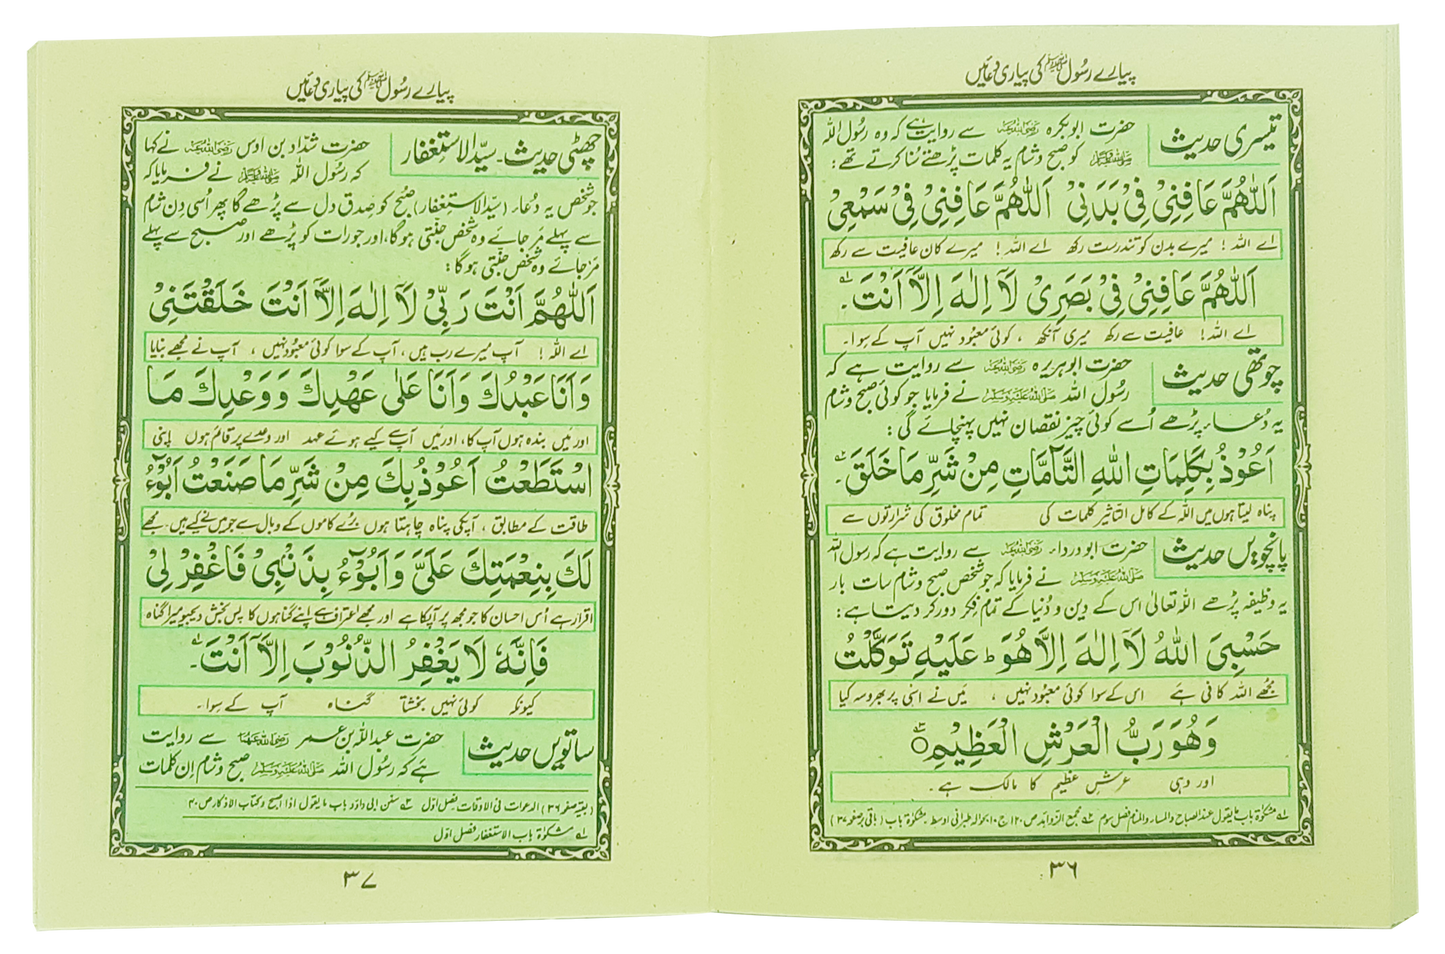 پیارے رسُول ﷺ کی پیاری دعائیں
تیسری حدیث
حضرت ابوبکرہ رضی اللہ عنہ سے روایت ہے کہ وہ رسول اللہ
ﷺ کو صبح وشام یہ کلمات پڑھتے سُنا کرتے تھے:
اَللّٰهُمَّ عَافِنِيْ فِيْ بَدَنِيْ اَللّٰهُمَّ عَافِنِيْ فِيْ سَمْعِيْ
اے اللہ! میرے بدن کو تندرست رکھ اے اللہ! میرے کان عافیت سے رکھ
اَللّٰهُمَّ عَافِنِيْ فِيْ بَصَرِيْ لَآ اِلٰهَ اِلَّآ اَنْتَ۔
اے اللہ! عافیت سے رکھ میری آنکھ ، کوئی معبود نہیں آپ کے سوا۔
چوتھی حدیث
حضرت ابوہریرہ رضی اللہ عنہ سے روایت ہے کہ
رسُول اللہ ﷺ نے فرمایا جو کوئی صبح وشام
یہ دُعاء پڑھے اُسے کوئی چیز نقصان نہیں پہنچائے گی:
اَعُوْذُ بِكَلِمَاتِ اللهِ التَّآمَّاتِ مِنْ شَرِّ مَا خَلَقَ۔
پناہ لیتا ہوں میں اللہ کے کامل التاثیر کلمات کی تمام مخلوق کی شرارتوں سے
پانچویں حدیث
حضرت ابو درداء رضی اللہ عنہ سے روایت ہے کہ رسول اللہ
ﷺ نے فرمایا کہ جو شخص صبح وشام سات بار
یہ وظیفہ پڑھے اللہ تعالیٰ اس کے دین و دُنیا کے تمام فکر دور کر دیتا ہے:
حَسْبِيَ اللهُ لَآ اِلٰهَ اِلَّا هُوَ ط عَلَيْهِ تَوَكَّلْتُ
مجھے اللہ کافی ہے اس کے سوا کوئی معبود نہیں ، میں نے اسی پر بھروسہ کیا
وَهُوَ رَبُّ الْعَرْشِ الْعَظِيْمِ
اور وہی عرشِ عظیم کا مالک ہے۔
لہ مشکوٰۃ باب مایقول عند الصباح والمساء والمنام فصل سوم مجمع الزوائد ص ۱۲۰ ج ۱۰ بحوالہ طبرانی اوسط مشکوٰۃ باب (باقی بر صفحہ ۳۷)
۳۶
پیارے رسُول ﷺ کی پیاری دعائیں
چھٹی حدیث۔ سیّد الاستغفار
حضرت شدّاد بن اوس رضی اللہ عنہ نے کہا
کہ رسُول اللہ ﷺ نے فرمایا کہ
جو شخص یہ دُعاء (سیّد الاستغفار) صُبح کو صِدق دل سے پڑھے گا پھر اُسی دِن شام
سے پہلے مر جائے وہ شخص جنّتی ہوگا، اور جو رات کو پڑھے اور صبح سے پہلے
مر جائے وہ شخص جنّتی ہوگا:
اَللّٰهُمَّ اَنْتَ رَبِّيْ لَآ اِلٰهَ اِلَّآ اَنْتَ خَلَقْتَنِيْ
اے اللہ! آپ میرے رب ہیں، آپ کے سوا کوئی معبود نہیں ، آپ نے مجھے بنایا
وَاَنَا عَبْدُكَ وَاَنَا عَلٰى عَهْدِكَ وَوَعْدِكَ مَا
اور میں بندہ ہوں آپ کا، اور میں آپ سے کیے ہوئے عہد اور وعدے پر قائم ہوں اپنی
اسْتَطَعْتُ اَعُوْذُ بِكَ مِنْ شَرِّ مَا صَنَعْتُ اَبُوْٓءُ
طاقت کے مطابق ، آپکی پناہ چاہتا ہوں بُرے کاموں کے وبال سے جو میں نے کیے ہیں۔ مجھے
لَكَ بِنِعْمَتِكَ عَلَيَّ وَاَبُوْٓءُ بِذَنْۢبِيْ فَاغْفِرْ لِيْ
اقرار ہے اُس احسان کا جو مجھ پر آپکا ہے اور مجھے اعتراف ہے اپنے گناہوں کا پس بخش دیجیو میرا گناہ
فَاِنَّهٗ لَا يَغْفِرُ الذُّنُوْبَ اِلَّآ اَنْتَ۔
کیونکہ کوئی نہیں بخشتا گناہ آپ کے سِوا۔
ساتویں حدیث
حضرت عبداللہ بن عمر رضی اللہ عنہما سے روایت
ہے کہ رسُول اللہ ﷺ صبح و شام اِن کلمات
(بقیہ صفحہ ۳۶) الدعوات فی الاوقات فصل اوّل سنن ابی داؤد باب مایقول اذا اصبح وکتاب الاذکار ص ۴۰
لہ مشکوٰۃ باب الاستغفار فصل اوّل
۳۷